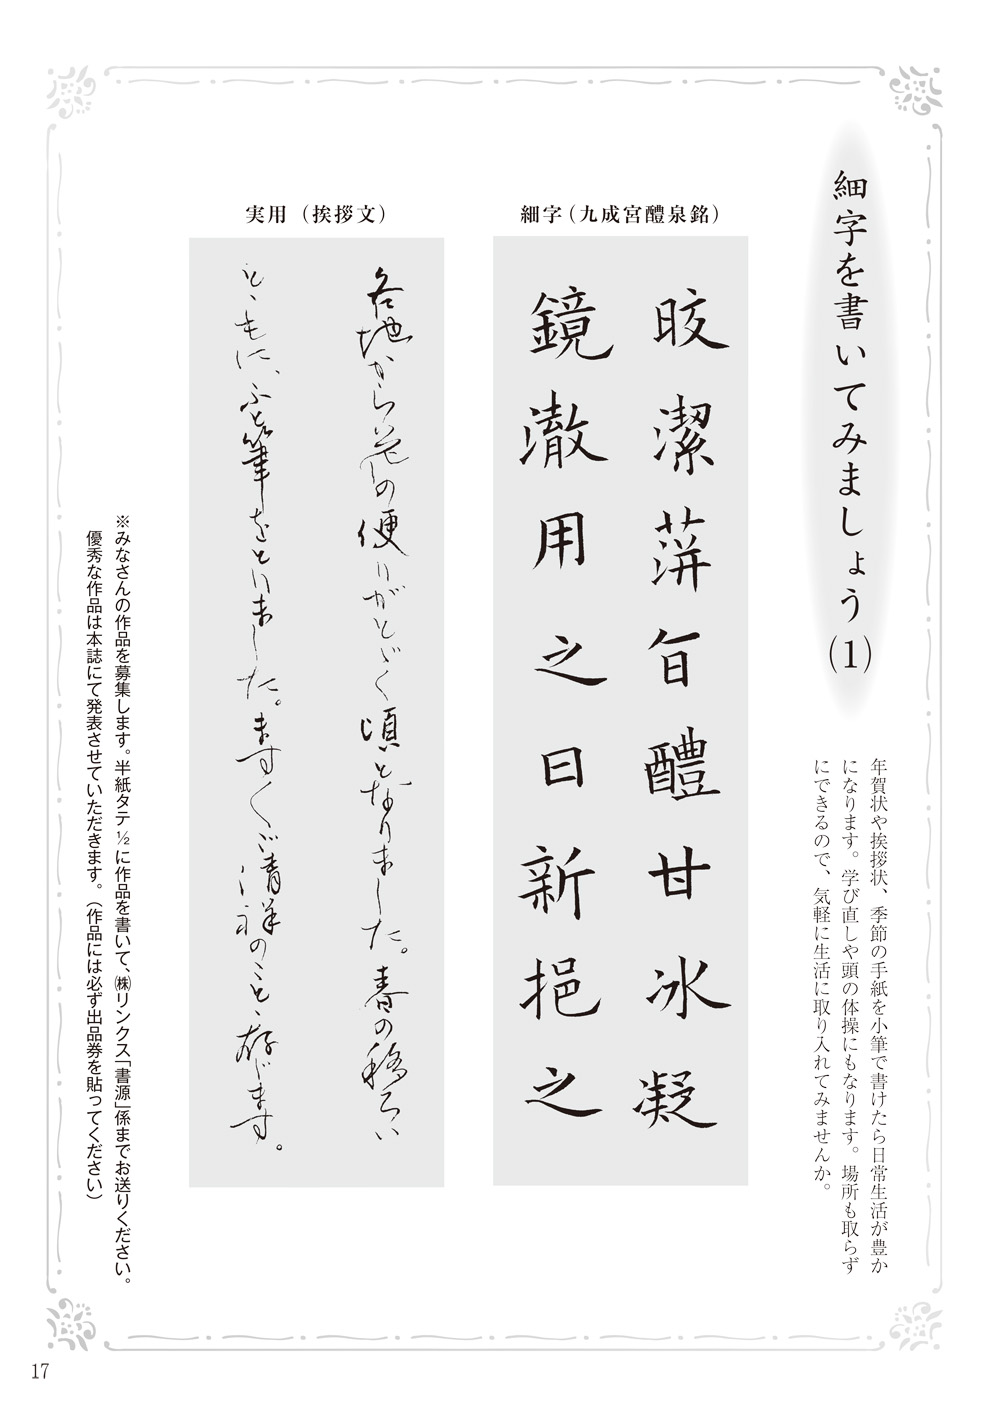 細字を書いてみましょう(1)
年賀状や挨拶状、季節の手紙を小筆で書けたら日常生活が豊か
になります。学び直しや頭の体操にもなります。場所も取らず
にできるので、気軽に生活に取り入れてみませんか。
細字(九成宮醴泉銘)
晈潔萍旨醴甘冰凝
鏡澈用之日新挹之
実用(挨拶文)
各地から花の便りがとゞく頃となりました。春の移ろい
とゝもに、ふと筆をとりました。ます〱ご清祥のことゝ存じます。
※みなさんの作品を募集します。半紙タテ½に作品を書いて、㈱リンクス「書源」係までお送りください。
優秀な作品は本誌にて発表させていただきます。(作品には必ず出品券を貼ってください)
17